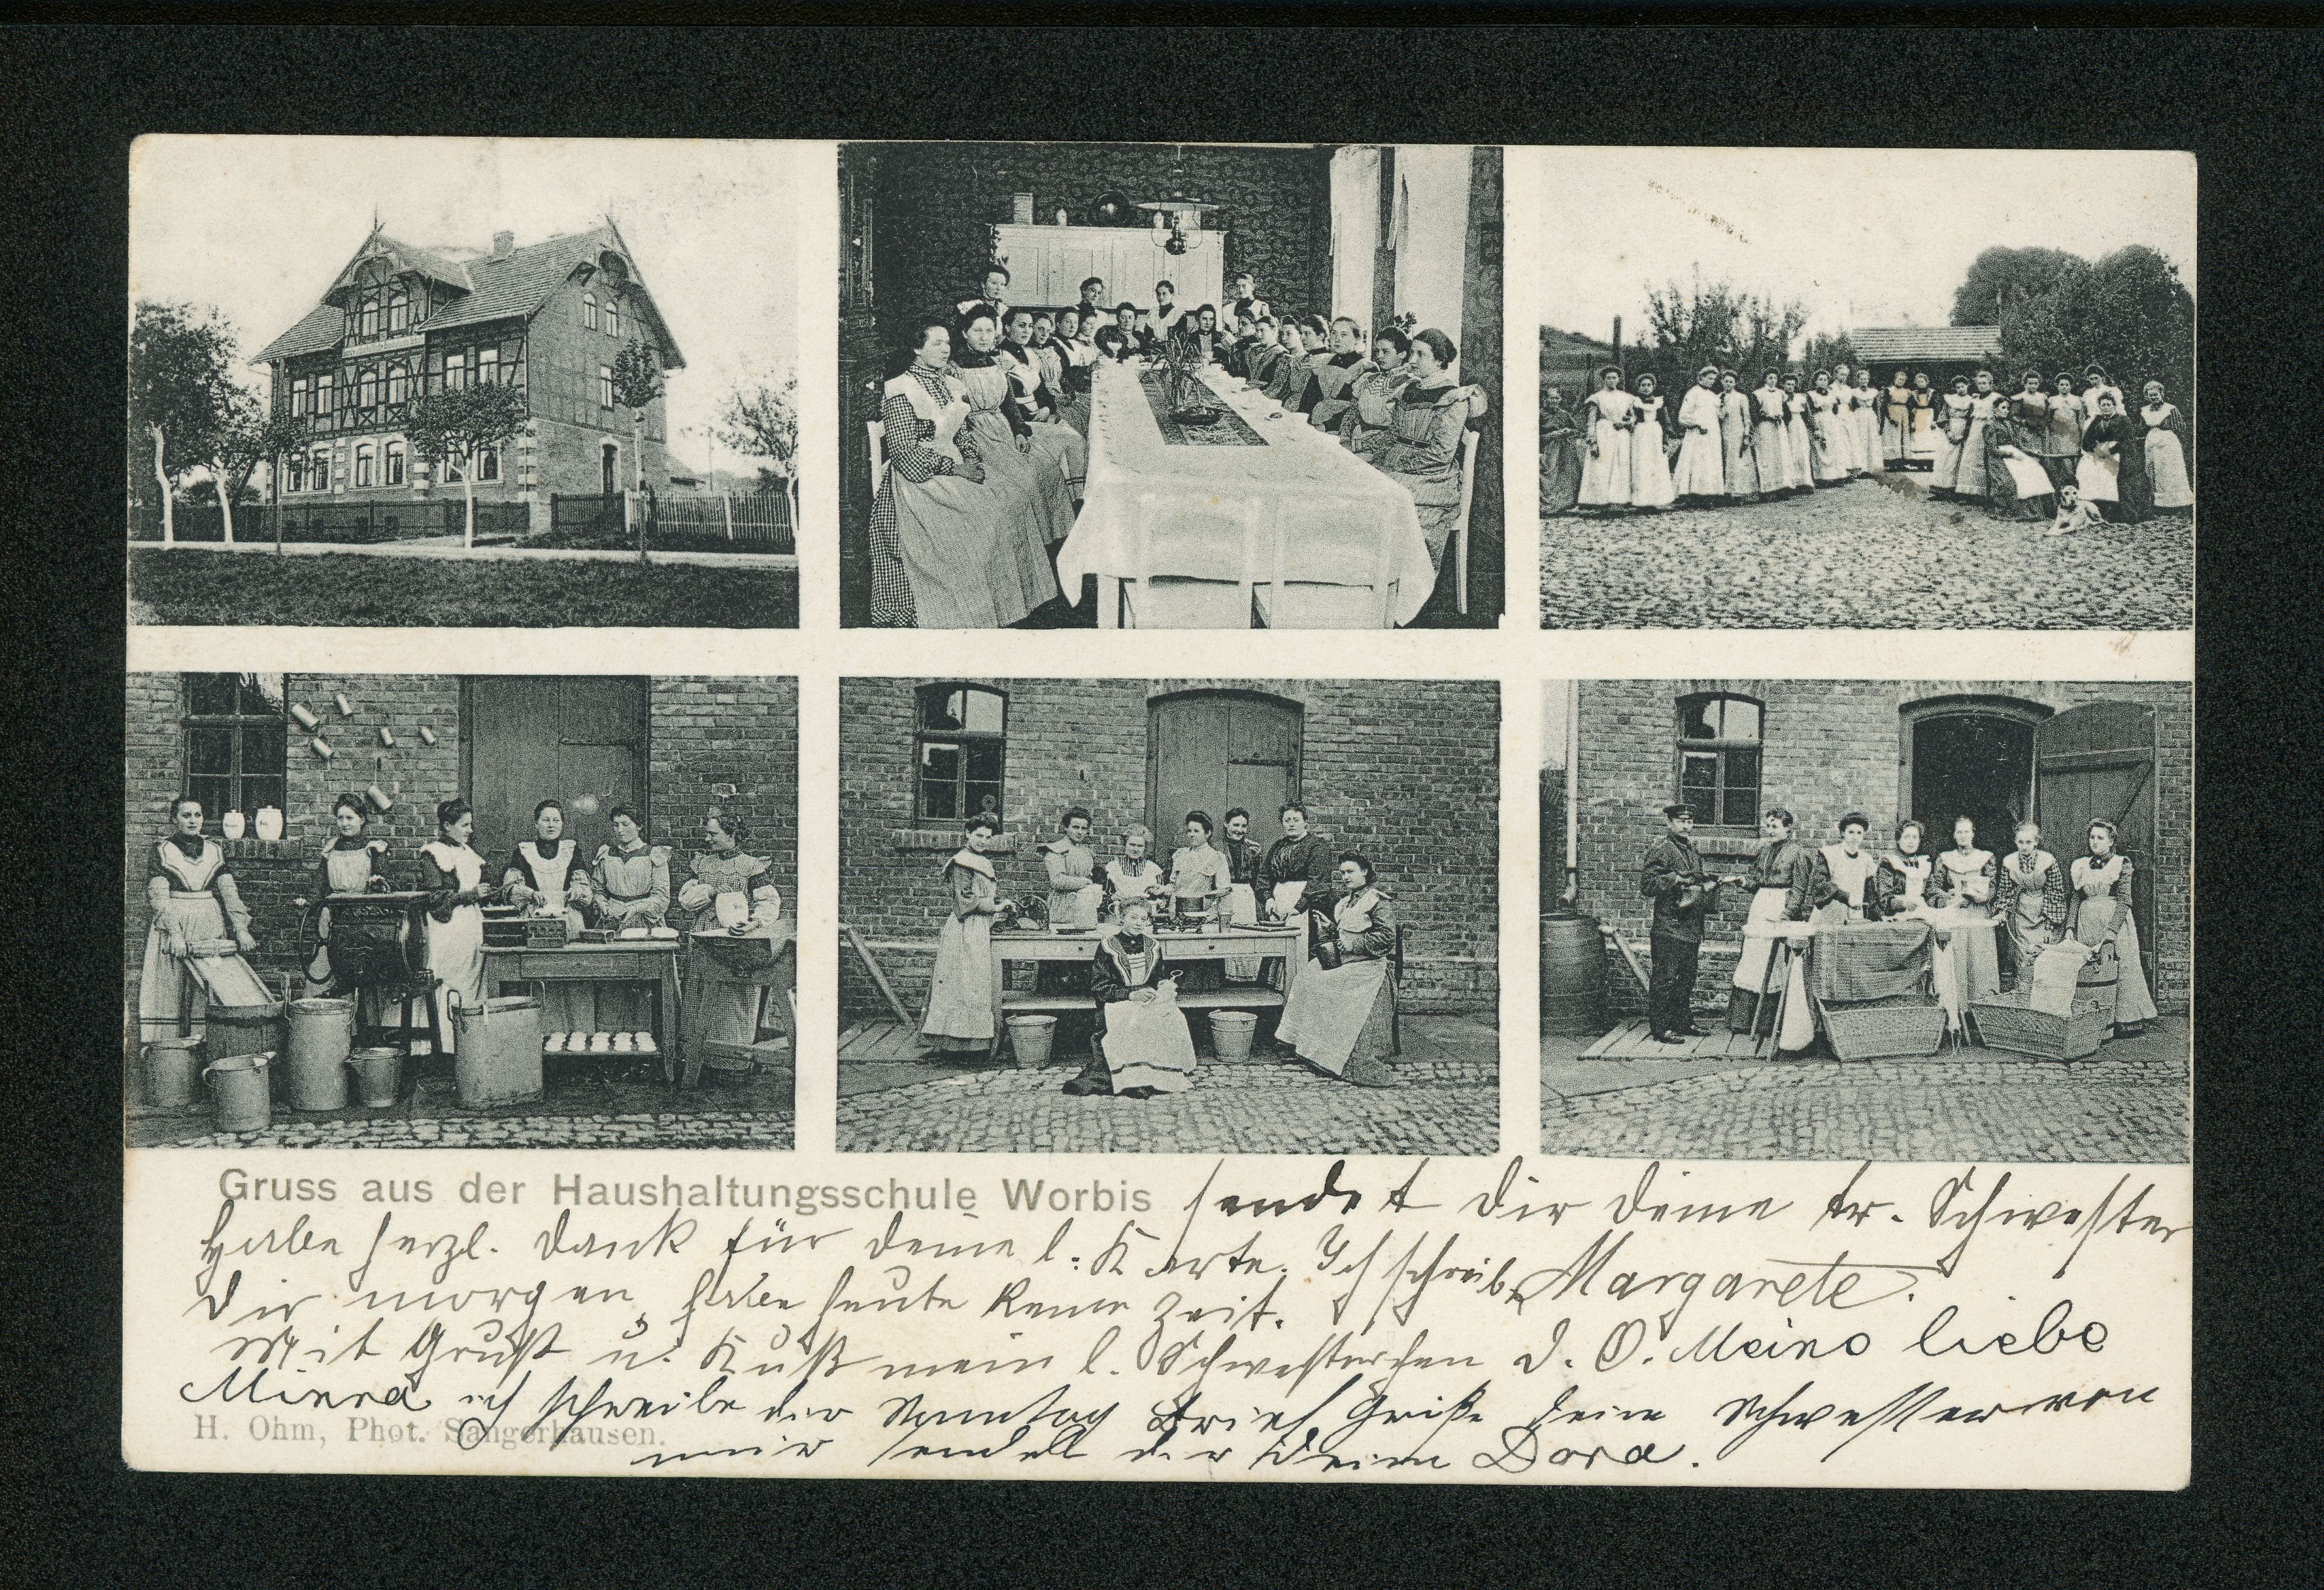 Gruss aus der Haushaltungsschule Worbis sendet dir deine tr. Schwester
Habe herzl. Dank für deine l. Karte. Ich schreibe Margarete.
dir morgen, habe heute keine Zeit.
Mit Gruß u. Kuß mein l. Schwesterchen d. O. Meine liebe
Minna ich schreibe dir Sonntag Brief Grüße deine Schwester von
H. Ohm, Phot. Sangerhausen.
mir sendet dir Deine Dora.